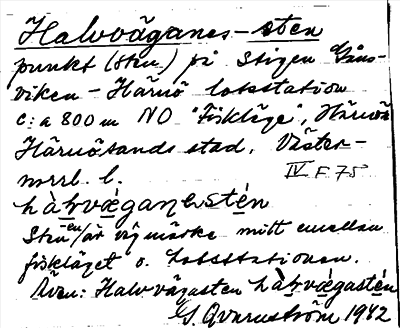 Halvväganes-sten
punkt (sten) på stigen Gåns-
viken - Härnö lotsstation
c:a 800 m NO "Fiskläge", Härnön
Härnösands stad. Väster-
norrl. l.
IV F 75
hàḷvvæganestén
Stenen/är vägmärke mitt emellan
fiskläget o. Lotsstationen.
Även: Halvvägasten hàḷvvægastén
G. Qvarnström 1942